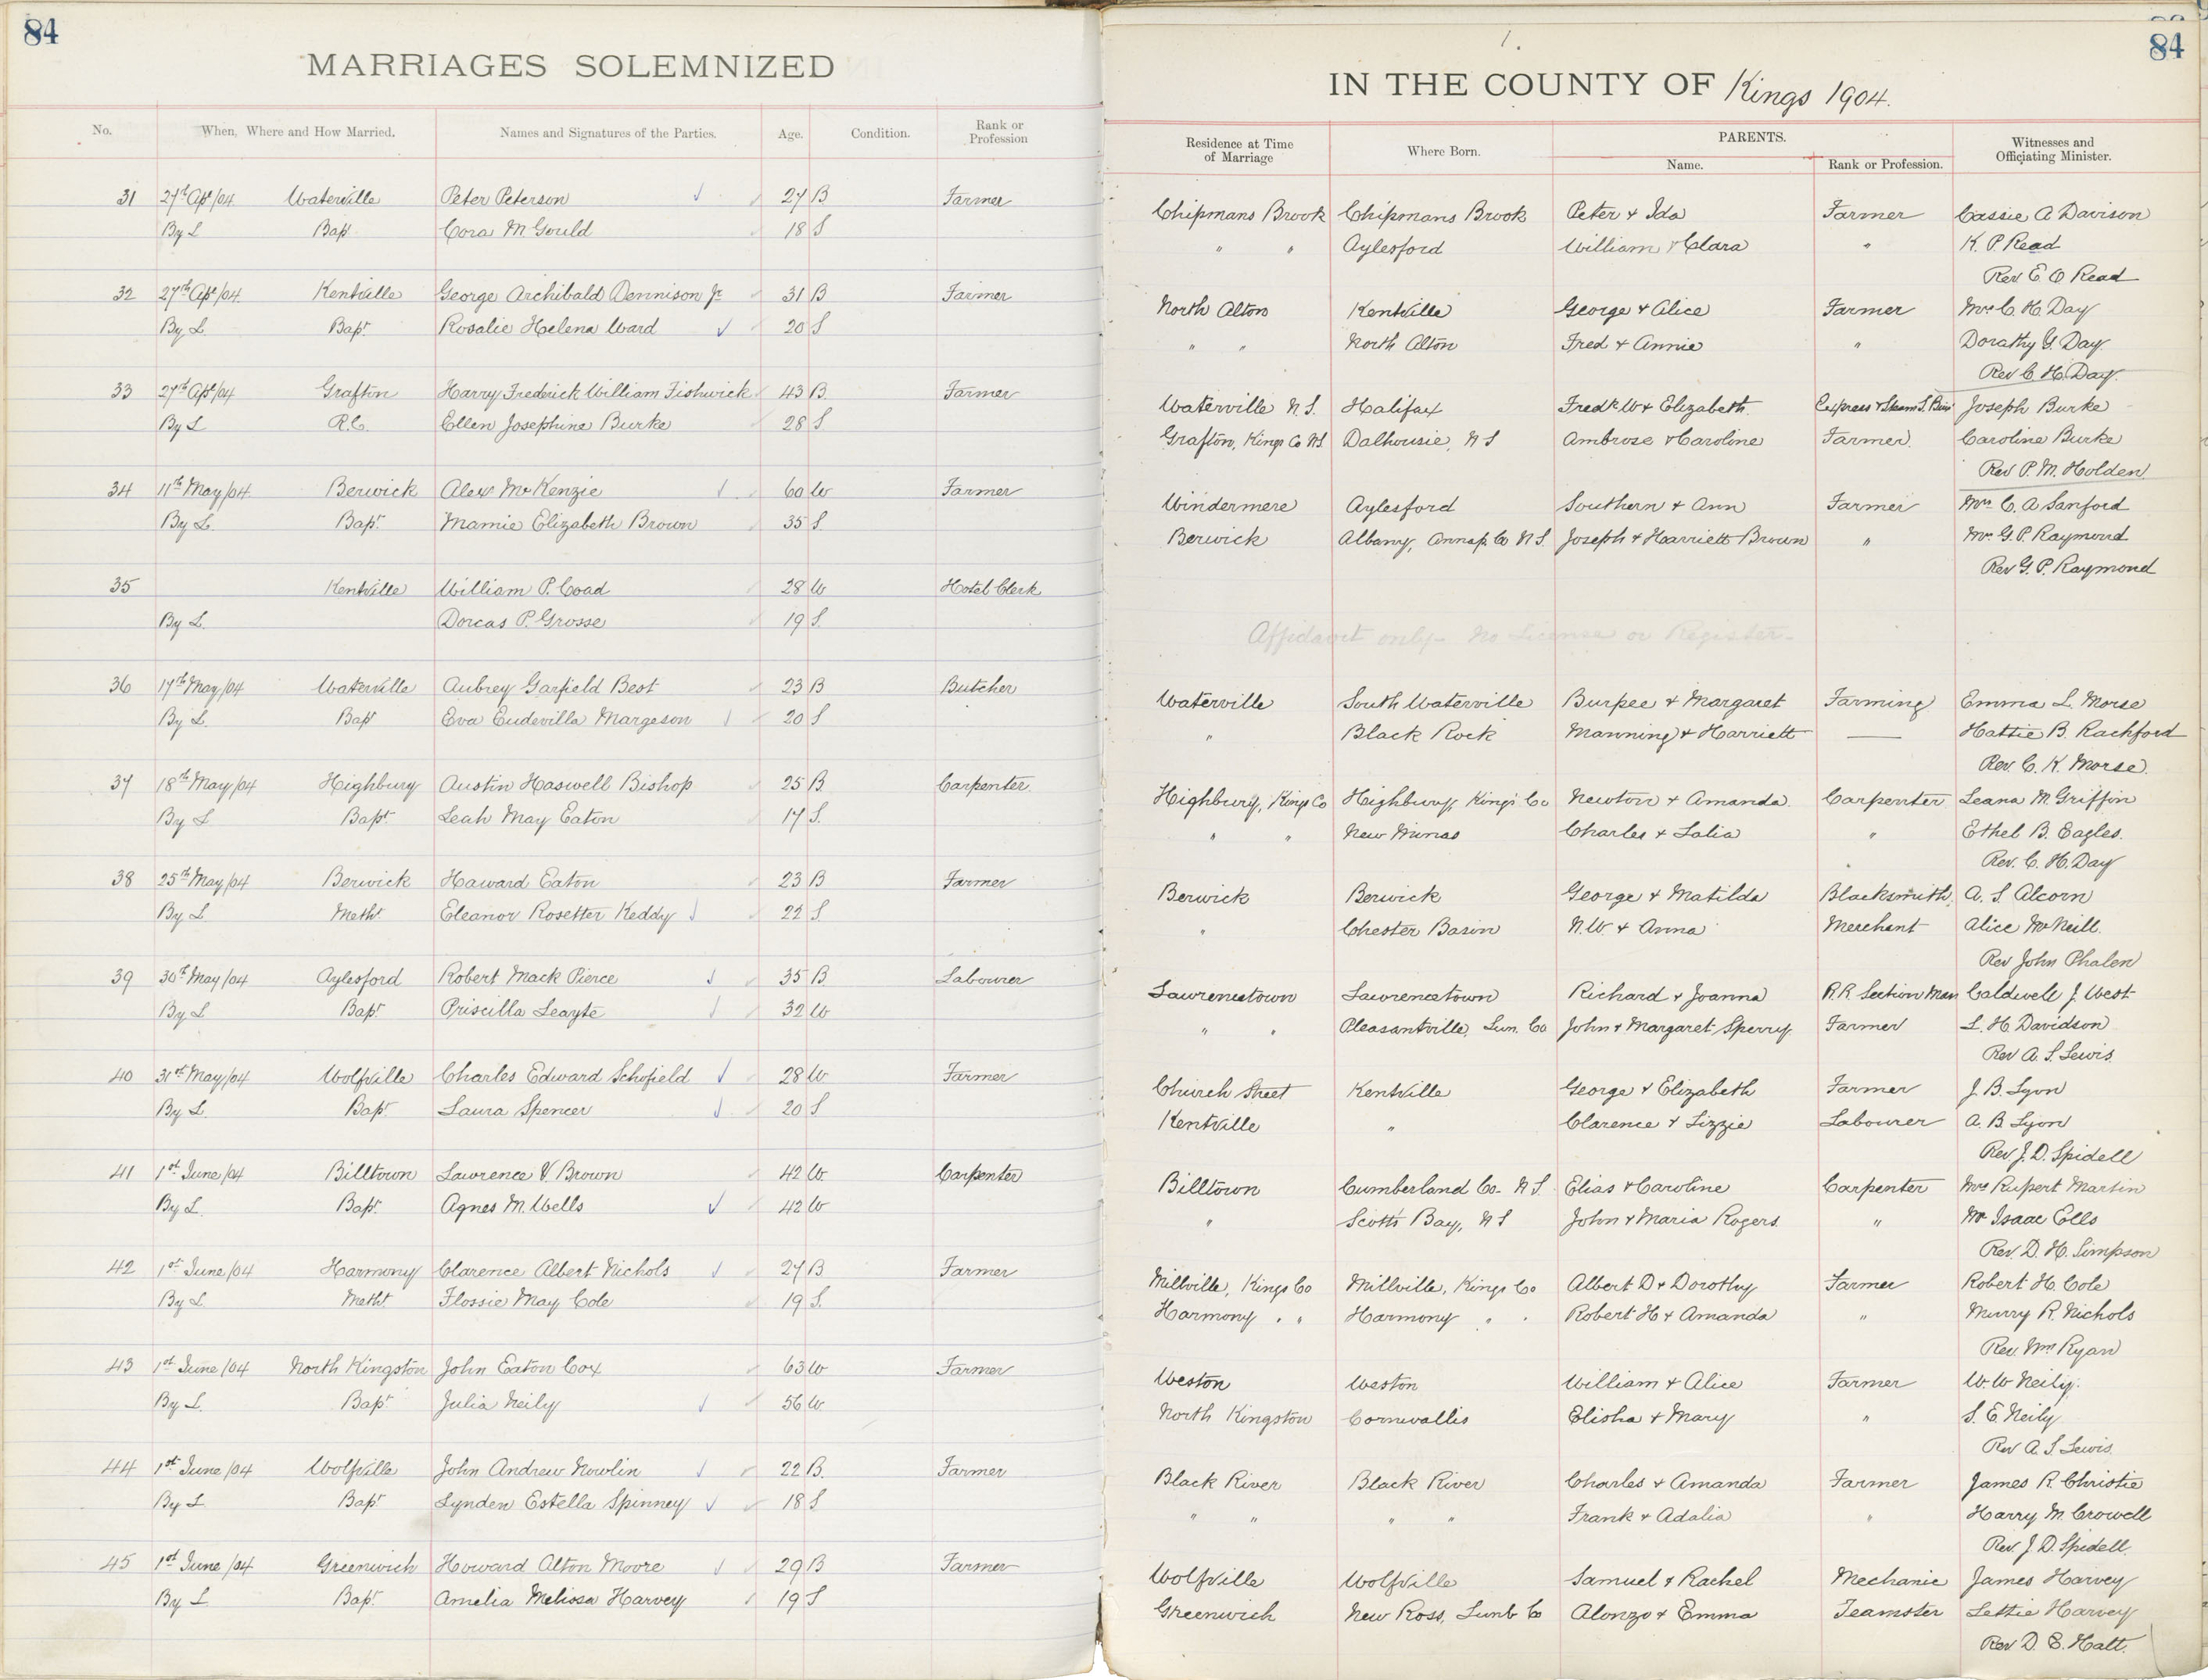 84
MARRIAGES SOLEMNIZED
No. When, Where and How Married. Names and Signatures of the Parties. Age. Condition. Rank or Profession
31 27th Apl/04 Waterville Peter Peterson 27 B Farmer
By L Bapt Cora M Gould 18 S
32 27th Apl/04 Kentville George Archibald Dennison Jr 31 B Farmer
By L. Bapt. Rosalie Helena Ward 20 S
33 27th Apl/04 Grafton Harry Frederick William Fishwick 43 B. Farmer
By L R.C. Ellen Josephine Burke 28 S
34 11th May/04 Berwick Alex McKenzie 60 W Farmer
By L. Bapt. Mamie Elizabeth Brown 35 S.
35 Kentville William P. Coad 28 W Hotel Clerk
By L. Dorcas P. Grosse 19 S.
36 17th May/04 Waterville Aubrey Garfield Best 23 B Butcher
By L. Bapt Eva Eudevilla Margeson 20 S
37 18th May/04 Highbury Austin Haswell Bishop 25 B. Carpenter.
By L Bapt. Leah May Eaton 17 S.
38 25th May/04 Berwick Haward Eaton 23 B Farmer
By L. Meth. Eleanor Rosetter Keddy 22 S
39 30th May/04 Aylesford Robert Mack Pierce 35 B. Labourer
By L Bapt. Priscilla Leayte 32 W
40 31st May/04 Wolfville Charles Edward Schofield 28 W Farmer
By L. Bapt. Laura Spencer 20 S
41 1st June/04 Billtown Lawrence V. Brown 42 W. Carpenter
By L. Bapt. Agnes M. Wells 42 W
42 1st June/04 Harmony Clarence Albert Nichols 27 B Farmer
By L. Meth. Flossie May Cole 19 S.
43 1st June/04 North Kingston John Eaton Cox 63 W Farmer
By L. Bapt Julia Neily 56 W.
44 1st June/04 Wolfville John Andrew Nowlin 22 B. Farmer
By L Bapt. Lynden Estella Spinney 18 S
45 1st June/04 Greenwich Howard Alton Moore 29 B Farmer
By L Bapt. Amelia Melissa Harvey 19 S
1.
84
IN THE COUNTY OF Kings 1904.
Residence at Time of Marriage Where Born. PARENTS. Name. Rank or Profession. Witnesses and Officiating Minister.
Chipmans Brook Chipmans Brook Peter & Ida Farmer Cassie A Davison
" " Aylesford William & Clara " K. P. Read
Rev E O Read
North Alton Kentville George & Alice Farmer Mrs C. H. Day
" " North Alton Fred & Annie " Dorathy G. Day.
Rev C. H. Day.
Waterville N.S. Halifax Fredk W & Elizabeth. Express & Steam S. Busi Joseph Burke
Grafton, Kings Co N.S. Dalhousie, N S Ambrose & Caroline Farmer. Caroline Burke
Rev P. M. Holden
Windermere Aylesford Southern & Ann Farmer Mrs C. A Sanford
Berwick Albany, Annap. Co N S. Joseph & Harriett Brown " Mr. G. P. Raymond
Rev G. P. Raymond
Affidavit only - No License or Register -
Waterville South Waterville Burpee & Margaret Farming Emma L. Morse
" Black Rock Manning & Harriett — Hattie B. Rachford
Rev. C. K. Morse.
Highbury, Kings Co Highbury, Kings Co Newton & Amanda. Carpenter. Leana M. Griffin
" " New Minas Charles & Lalia " Ethel B. Eagles.
Rev. C. H. Day
Berwick Berwick George & Matilda Blacksmith. A. S. Alcorn
" Chester Basin N. W. & Anna Merchant Alice McNeill.
Rev John Phalen
Lawrencetown Lawrencetown Richard & Joanna R.R. Section Man Caldwell J. West
" " Pleasantville, Lun. Co John & Margaret Sperry Farmer L. H. Davidson
Rev A. S. Lewis.
Church Street Kentville George & Elizabeth Farmer J. B. Lyon
Kentville " Clarence & Lizzie Labourer A. B. Lyon
Rev. J. D. Spidell
Billtown Cumberland Co. N S. Elias & Caroline Carpenter Mrs Rupert Martin
" Scotts Bay, N S John & Maria Rogers " Mr Isaac Ells
Rev D. H. Simpson
Millville, Kings Co Millville, Kings Co Albert D & Dorothy Farmer Robert H. Cole
Harmony " " Harmony " " Robert H & Amanda " Murry R. Nichols
Rev. Wm Ryan
Weston Weston William & Alice Farmer W. W Neily.
North Kingston Cornwallis Elisha & Mary " S. E. Neily
Rev A. S Lewis.
Black River Black River Charles & Amanda Farmer James R. Christie
" " " " Frank & Adalia " Harry M. Crowell
Rev J. D. Spidell.
Wolfville Wolfville Samuel & Rachel Mechanic James Harvey
Greenwich New Ross, Lunb Co Alonzo & Emma Teamster Lettie Harvey
Rev D. E. Hatt.